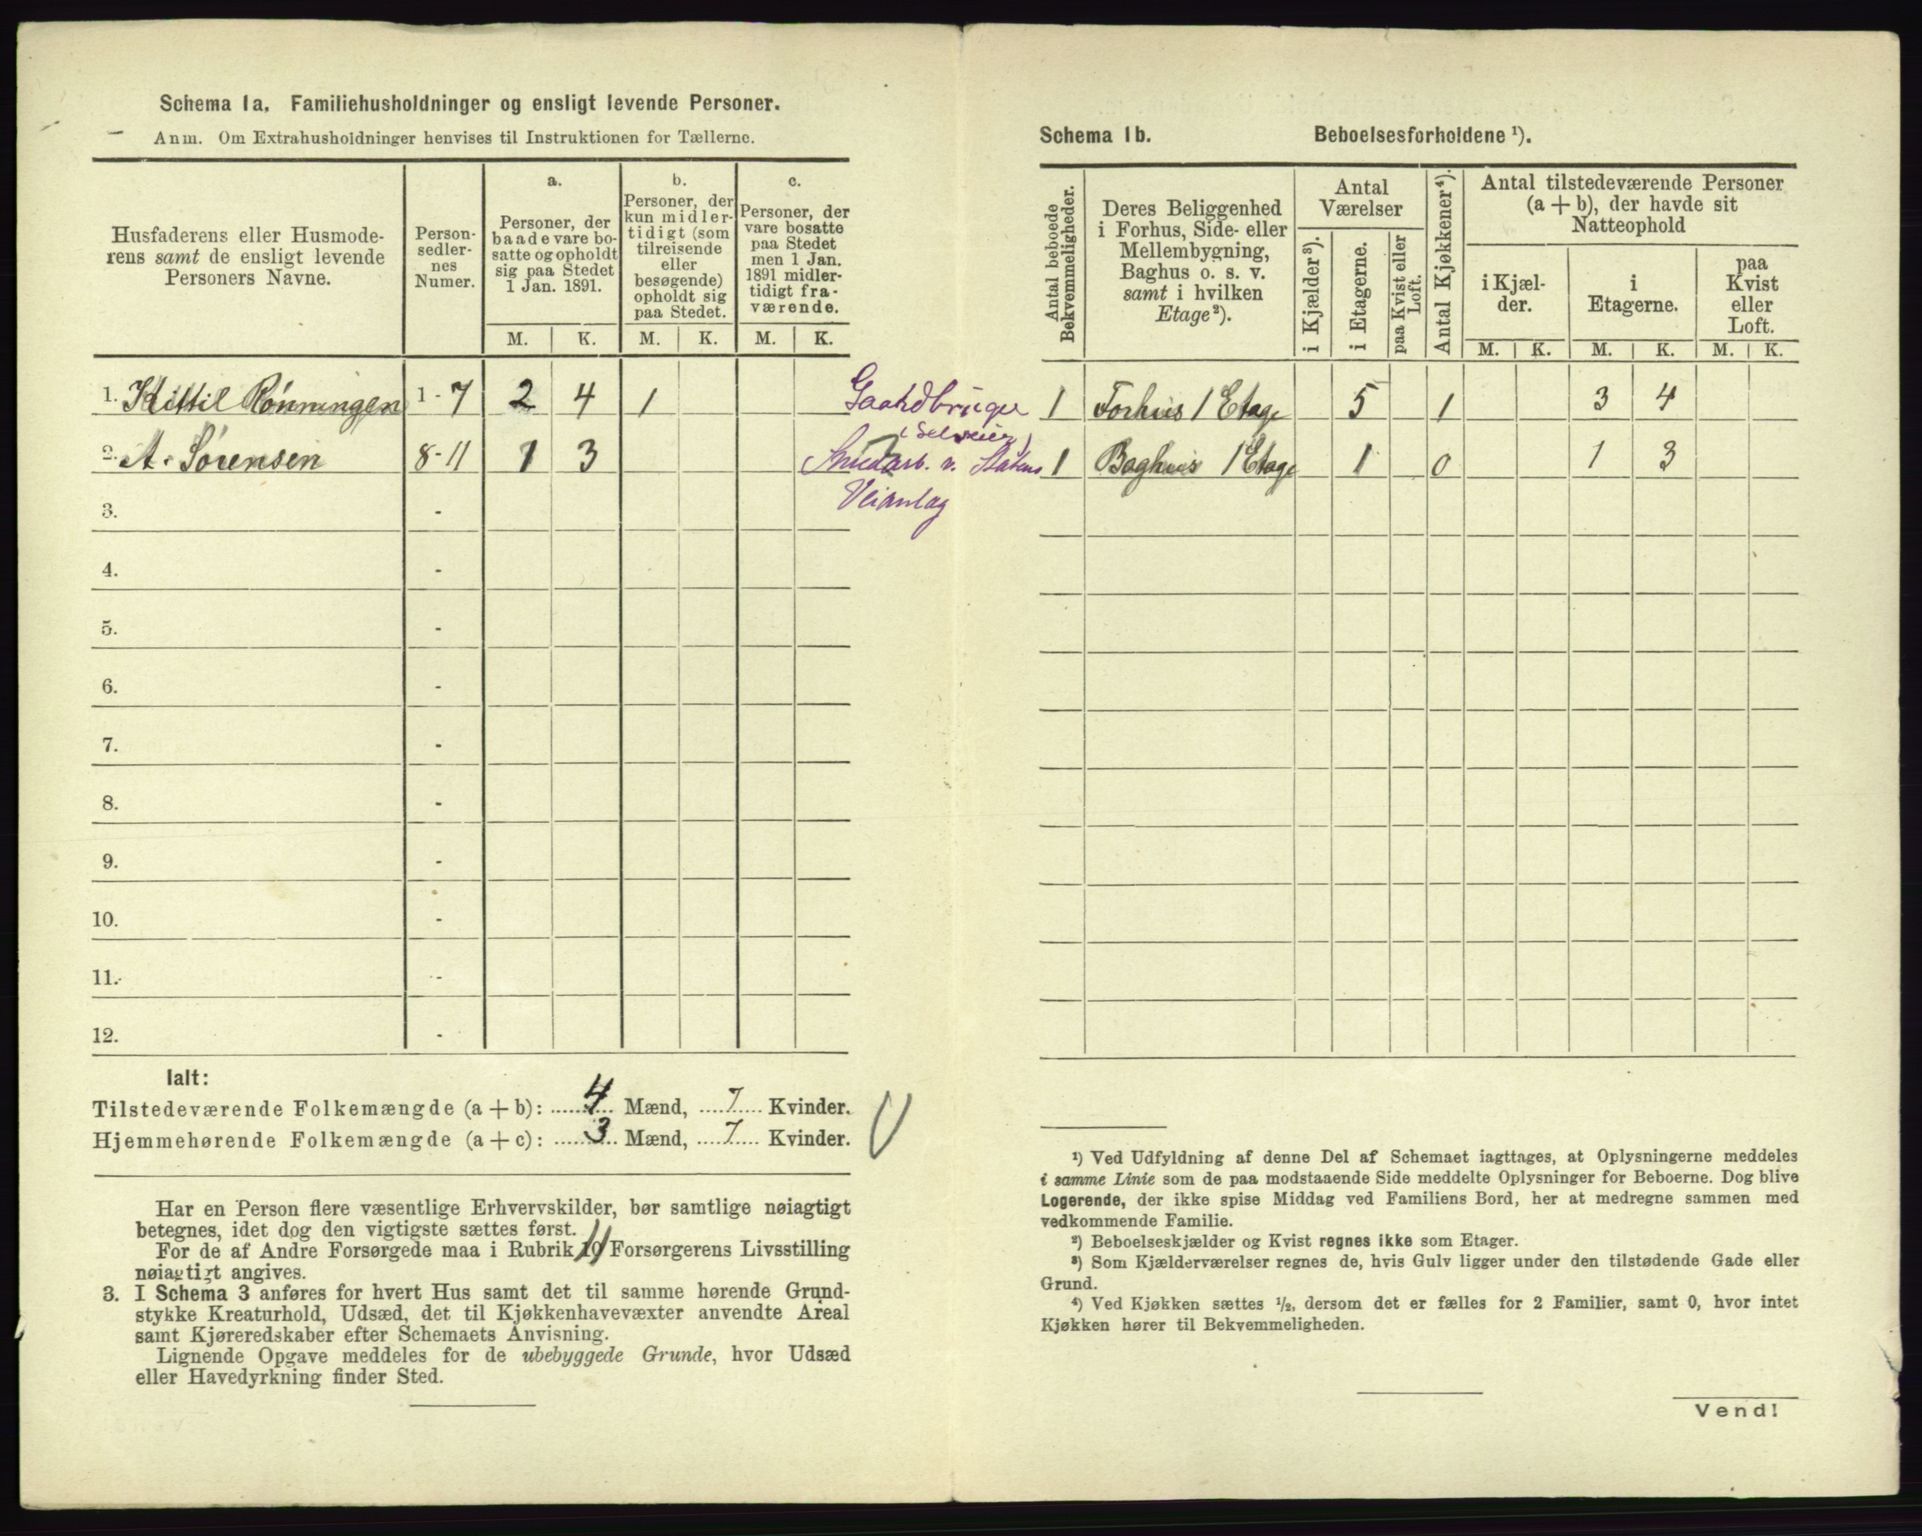 Schema 1a. Familiehusholdninger og ensligt levende Personer.
Anm. Om Extrahusholdninger henvises til Instruktionen for Tællerne.
Husfaderens eller Husmode-
rens samt de ensligt levende
Personers Navne.
Person-
sedler-
nes
Numer.
a.
Personer, der
baade vare bo-
satte og opholdt
sig paa Stedet
1 Jan. 1891.
b.
Personer, der
kun midler-
tidigt (som
tilreisende
eller
besøgende)
opholdt sig
paa Stedet.
c.
Personer, der
vare bosatte
paa Stedet
men 1 Jan.
1891 midler-
tidigt fra-
værende.
M. K. M. K. M. K.
1. Kittil Rönningen 1-7 2 4 1 Gaardbruger
(Selveier)
2. A. Sörensen 8-11 1 3 Smedarb. v. Statens
Veianlag
3. -
4. -
5. -
6. -
7. -
8. -
9. -
10. -
11. -
12. -
Ialt:
Tilstedeværende Folkemængde (a + b): 4 Mænd, 7 Kvinder.
Hjemmehørende Folkemængde (a + c): 3 Mænd, 7 Kvinder.
Har en Person flere væsentlige Erhvervskilder, bør samtlige nøiagtigt
betegnes, idet dog den vigtigste sættes først.
For de af Andre Forsørgede maa i Rubrik 10 11 Forsørgerens Livsstilling
nøiagtigt angives.
3. I Schema 3 anføres for hvert Hus samt det til samme hørende Grund-
stykke Kreaturhold, Udsæd, det til Kjøkkenhavevæxter anvendte Areal
samt Kjøreredskaber efter Schemaets Anvisning.
Lignende Opgave meddeles for de ubebyggede Grunde, hvor Udsæd
eller Havedyrkning finder Sted.
Schema 1b. Beboelsesforholdene ¹).
Antal beboede
Bekvemmeligheder.
Deres Beliggenhed
i Forhus, Side- eller
Mellembygning,
Baghus o. s. v.
samt i hvilken
Etage²).
Antal
Værelser
i Kjælder³).
i Etagerne.
paa Kvist eller
Loft.
Antal Kjøkkener⁴).
Antal tilstedeværende Personer
(a + b), der havde sit
Natteophold
i Kjæl-
der.
i
Etagerne.
paa
Kvist
eller
Loft.
M. K. M. K. M. K.
1 Forhus 1 Etage 5 1 3 4
1 Baghus 1 Etage 1 0 1 3
¹) Ved Udfyldning af denne Del af Schemaet iagttages, at Oplysningerne meddeles
i samme Linie som de paa modstaaende Side meddelte Oplysninger for Beboerne. Dog blive
Logerende, der ikke spise Middag ved Familiens Bord, her at medregne sammen med
vedkommende Familie.
²) Beboelseskjælder og Kvist regnes ikke som Etager.
³) Som Kjælderværelser regnes de, hvis Gulv ligger under den tilstødende Gade eller
Grund.
⁴) Ved Kjøkken sættes ½, dersom det er fælles for 2 Familier, samt 0, hvor intet
Kjøkken hører til Bekvemmeligheden.
Vend!